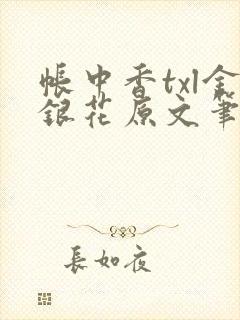 帳中香txl金
銀花原文筆
長如夜